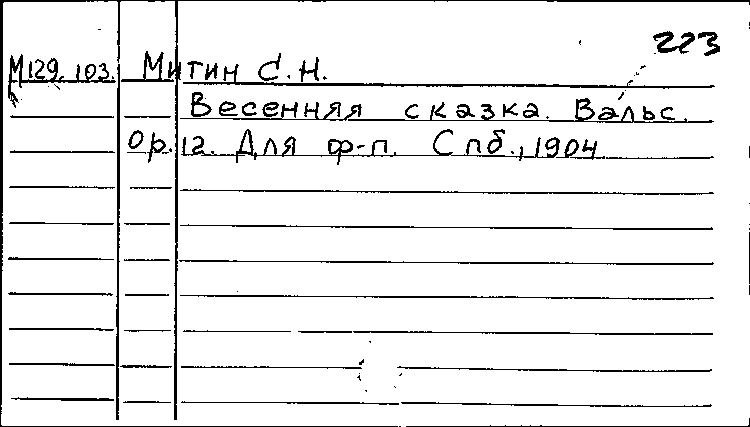 223
М129.103. Митин С.Н.
Весенняя сказка. Вальс.
Op.12. Для ф-п. Спб., 1904